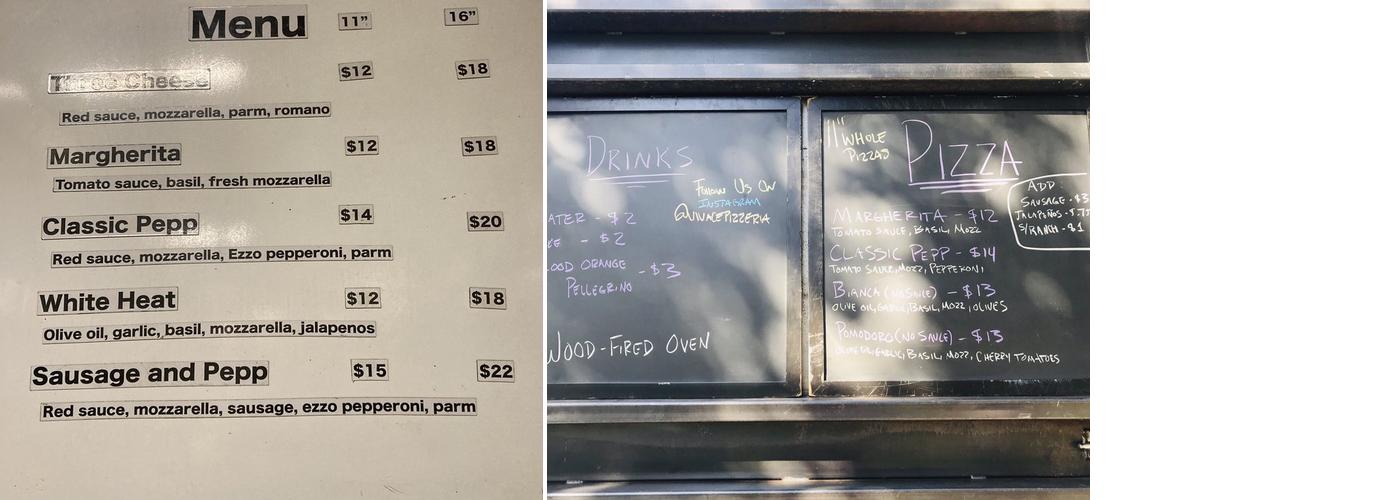 Menu 11" 16"
Three Cheese $12 $18
Red sauce, mozzarella, parm, romano
Margherita $12 $18
Tomato sauce, basil, fresh mozzarella
Classic Pepp $14 $20
Red sauce, mozzarella, Ezzo pepperoni, parm
White Heat $12 $18
Olive oil, garlic, basil, mozzarella, jalapenos
Sausage and Pepp $15 $22
Red sauce, mozzarella, sausage, ezzo pepperoni, parm
DRINKS
FOLLOW US ON
INSTAGRAM
@VIVACEPIZZERIA
ATER - $2
KE - $2
OOD ORANGE - $3
PELLEGRINO
WOOD-FIRED OVEN
11" WHOLE
PIZZAS
PIZZA
ADD
SAUSAGE - $3
JALAPEÑOS -
S/RANCH - $1
MARGHERITA - $12
TOMATO SAUCE, BASIL, MOZZ
CLASSIC PEPP - $14
TOMATO SAUCE, MOZZ, PEPPERONI
BIANCA (NO SAUCE) - $13
OLIVE OIL, GARLIC, BASIL, MOZZ, OLIVES
POMODORO (NO SAUCE) - $13
OLIVE OIL, GARLIC, BASIL, MOZZ, CHERRY TOMATOES